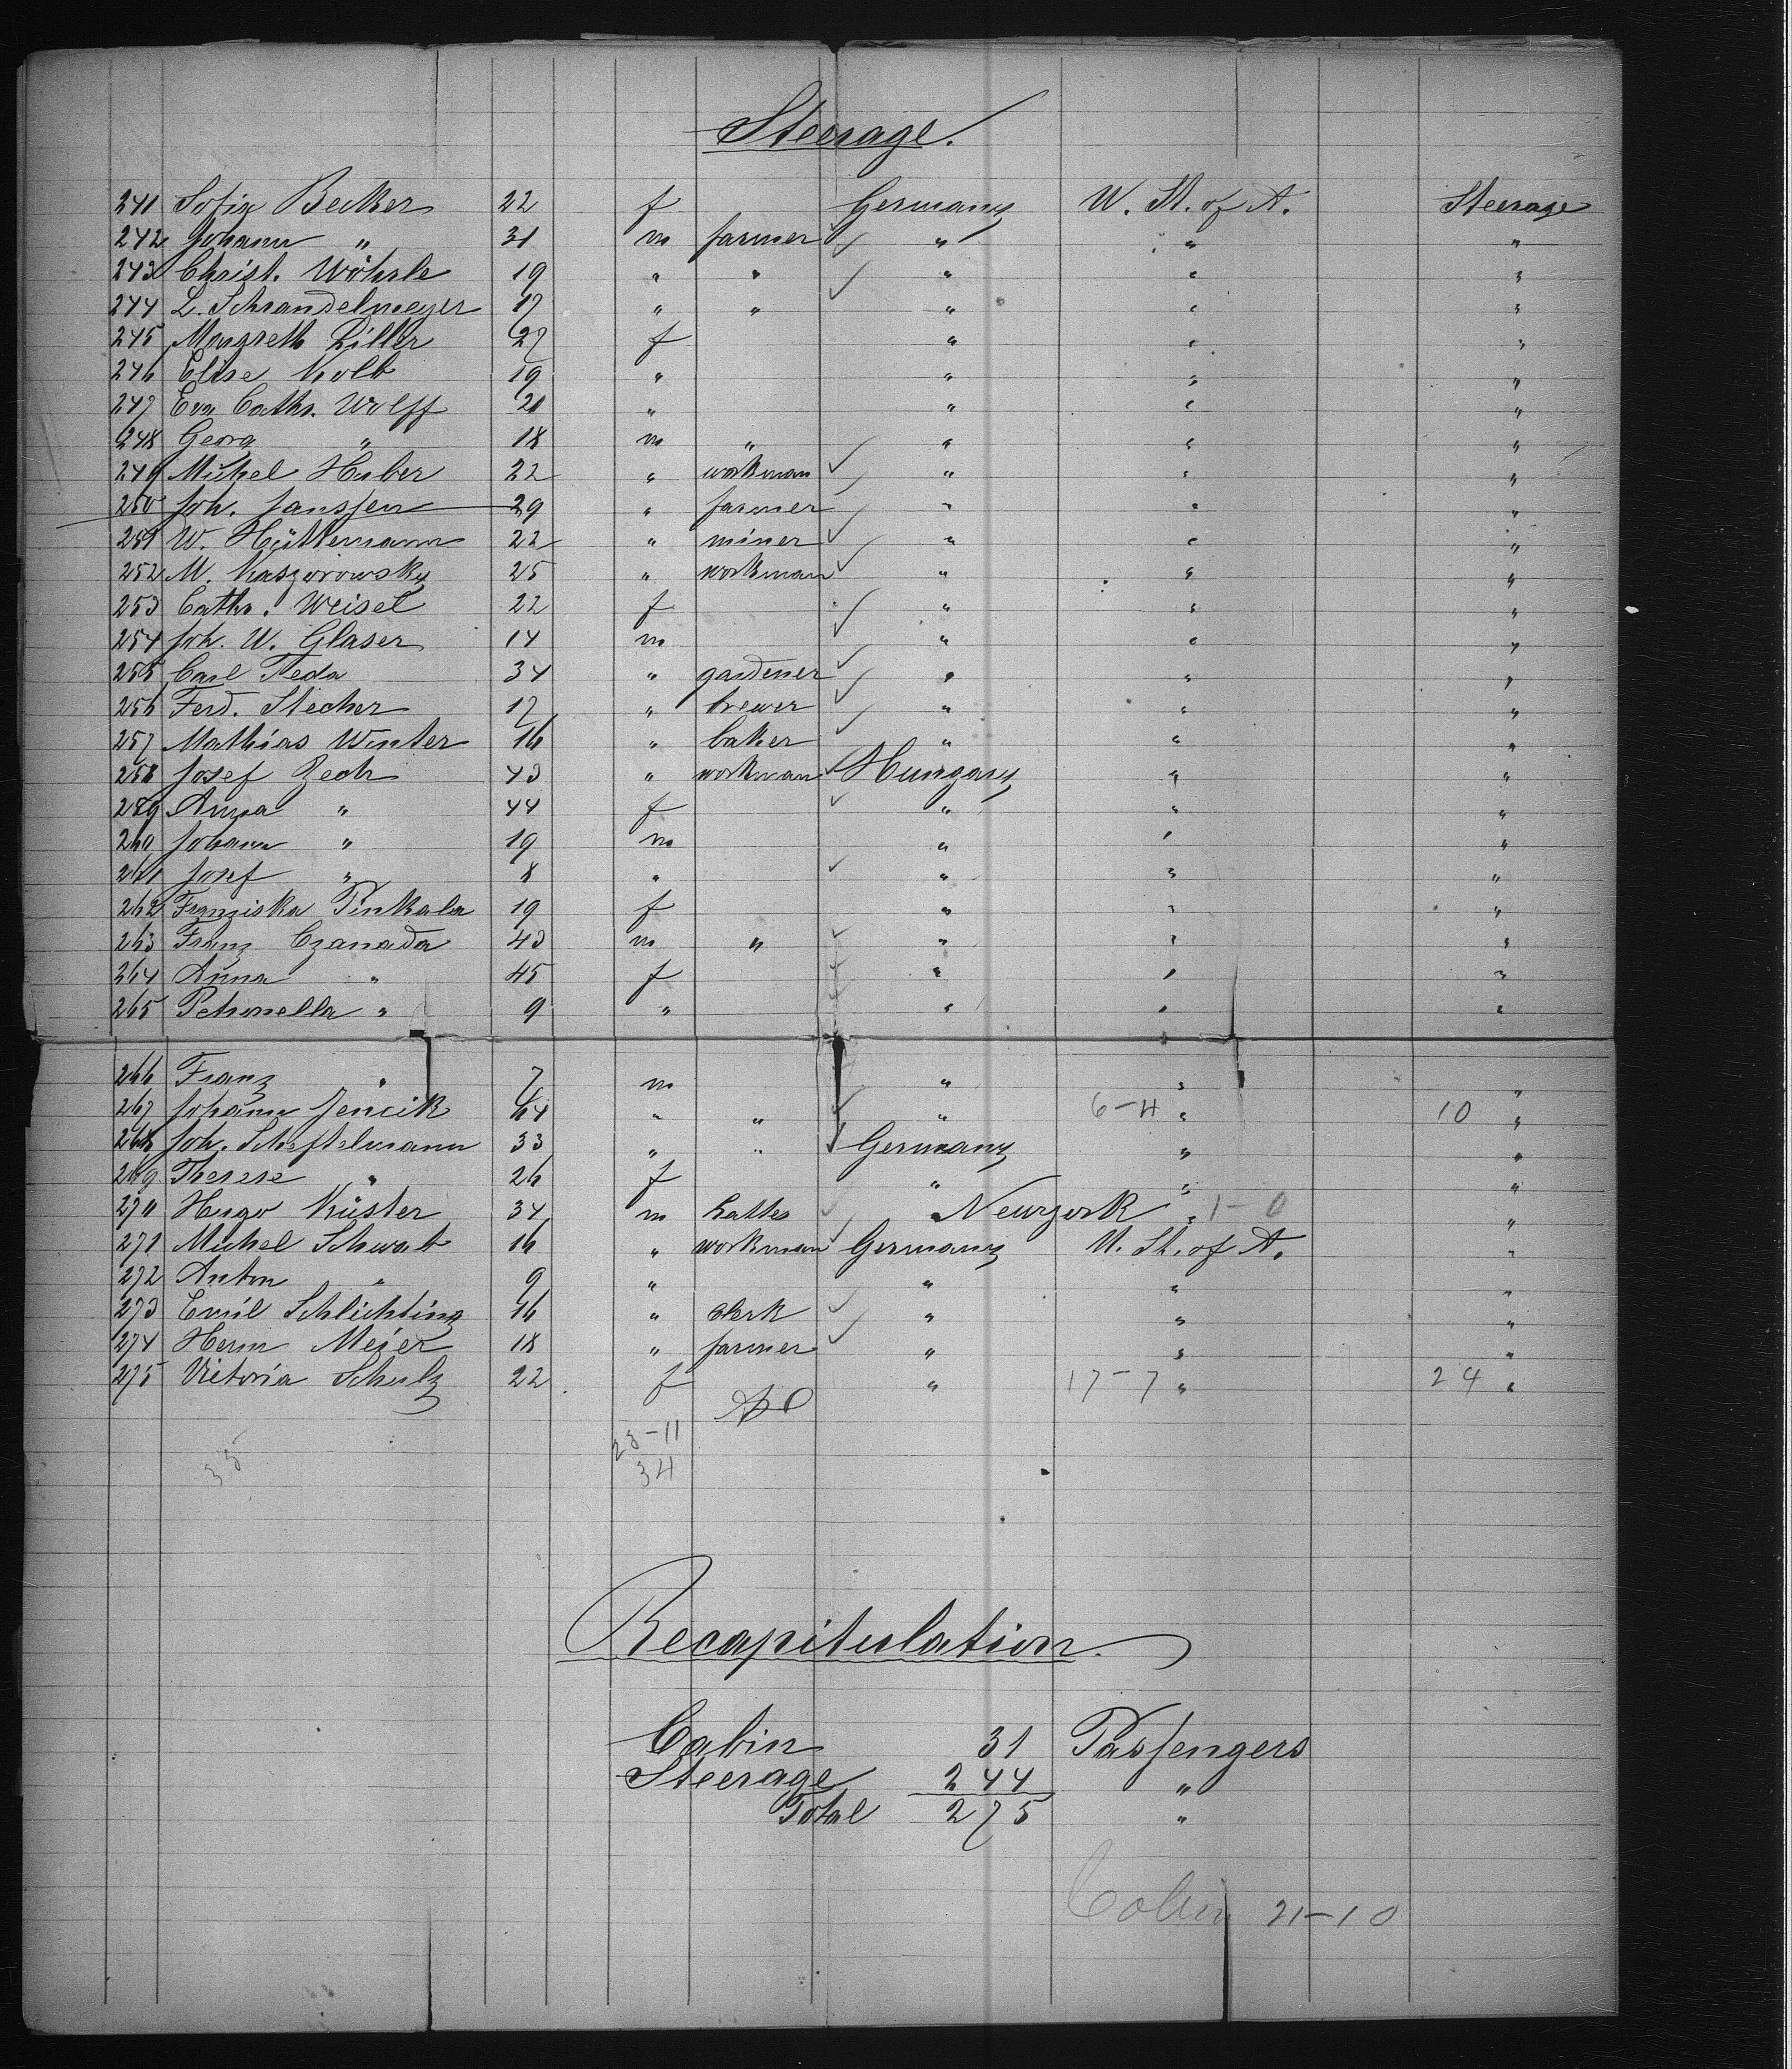 Steerage.
241 Sofia Becker 22 f Germany U. St. of A. Steerage
242 Johann " 31 m farmer " " "
243 Christ. Wöhrle 19 " " " " "
244 L. Schrandelmeyer 17 " " " " "
245 Margreth Ziller 27 f " " "
246 Elise Kolb 19 " " " "
247 Eva Cath. Wolff 21 " " " "
248 Georg " 18 m " " " "
249 Michel Huber 22 " workman " " "
250 Joh. Janssen 29 " farmer " " "
251 W. Hüttemann 22 " miner " " "
252 M. Kaszorowsky 25 " workman " " "
253 Cath. Weisel 22 f " " "
254 Joh. W. Glaser 14 m " " "
255 Carl Feda 34 " gardener " " "
256 Ferd. Stecher 17 " brewer " " "
257 Mathias Winter 16 " baker " " "
258 Josef Zech 43 " workman Hungary " "
259 Anna " 44 f " " "
260 Johann " 19 m " " "
261 Josef " 8 " " " "
262 Franziska Pinkala 19 f " " "
263 Franz Czanada 43 m " " " "
264 Anna " 45 f " " "
265 Petronella " 9 " " " "
266 Franz " 7 m " " "
267 Johann Jencik 64 " " " 6-4 " 10 "
268 Joh. Scheftelmann 33 " " Germany " "
269 Therese " 26 f " " "
270 Hugo Küster 34 m hatter " Newyork " 1-0 "
271 Michel Schwab 16 " workman Germany U. St. of A. "
272 Anton " 9 " " " "
273 Emil Schlichting 16 " clerk " " "
274 Herm Meier 18 " farmer " " "
275 Victoria Schulz 22 f " 17-7 " 24 "
23-11
35 34
Recapitulation.
Cabin 31 Passengers
Steerage 244 "
Total 275 "
Cabin 21-10